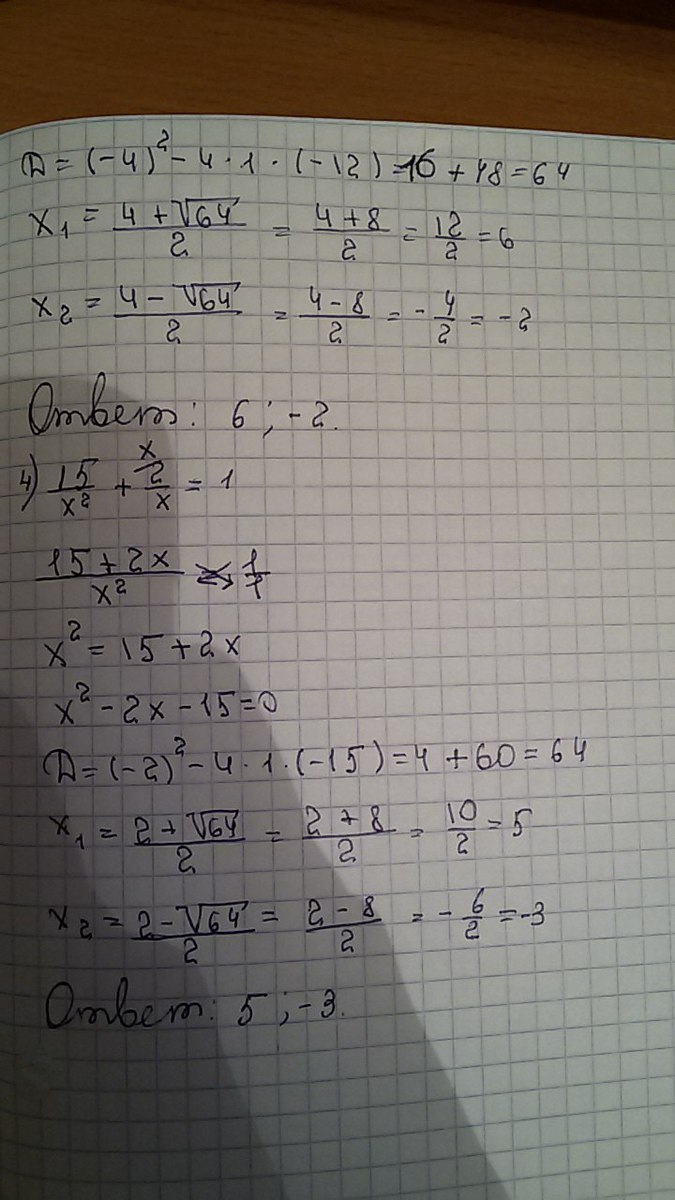 D = (-4)² - 4 · 1 · (-12) = 16 + 48 = 64
x₁ = (4 + √64)/2 = (4 + 8)/2 = 12/2 = 6
x₂ = (4 - √64)/2 = (4 - 8)/2 = - 4/2 = -2
Ответ: 6 ; -2.
4) 15/x² + 2/x = 1
x
(15 + 2x)/x² = 1/1
x² = 15 + 2x
x² - 2x - 15 = 0
D = (-2)² - 4 · 1 · (-15) = 4 + 60 = 64
x₁ = (2 + √64)/2 = (2 + 8)/2 = 10/2 = 5
x₂ = (2 - √64)/2 = (2 - 8)/2 = - 6/2 = -3
Ответ: 5 ; -3.